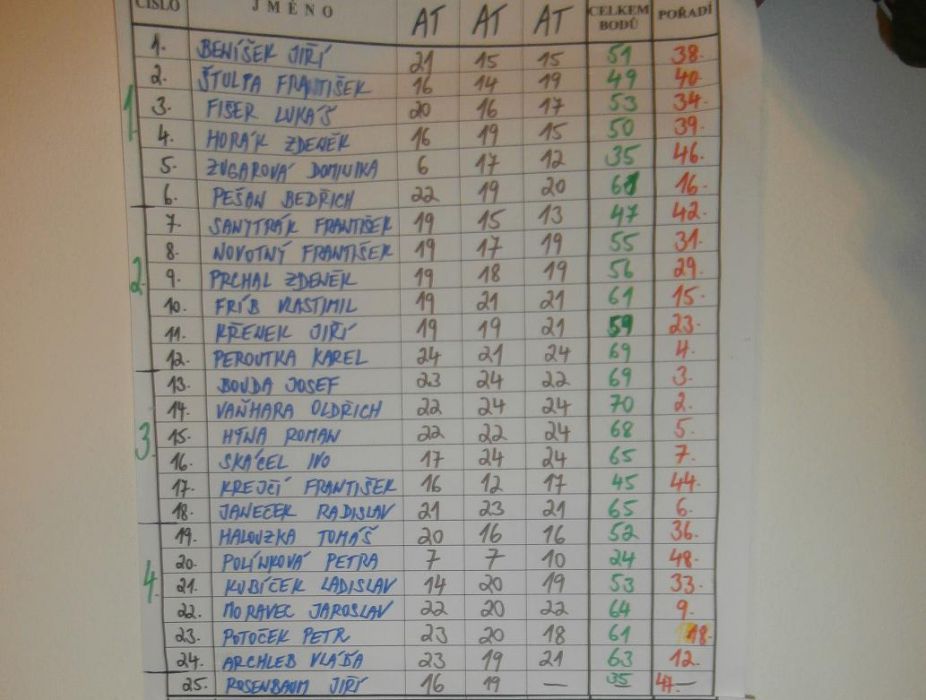 ČÍSLO JMÉNO AT AT AT CELKEM BODŮ POŘADÍ
1. BENÍŠEK JIŘÍ 21 15 15 51 38.
2. ŠTULPA FRANTIŠEK 16 14 19 49 40.
1 3. FIŠER LUKÁŠ 20 16 17 53 34.
4. HORÁK ZDENĚK 16 19 15 50 39.
5. ZUGAROVÁ DOMINIKA 6 17 12 35 46.
6. PEŠAN BEDŘICH 22 19 20 61 16.
7. SANYTRÁK FRANTIŠEK 19 15 13 47 42.
8. NOVOTNÝ FRANTIŠEK 19 17 19 55 31.
2. 9. PRCHAL ZDENĚK 19 18 19 56 29.
10. FRÍB VLASTIMIL 19 21 21 61 15.
11. KŘENEK JIŘÍ 19 19 21 59 23.
12. PEROUTKA KAREL 24 21 24 69 4.
13. BOUDA JOSEF 23 24 22 69 3.
14. VAŇHARA OLDŘICH 22 24 24 70 2.
3. 15. HÝNA ROMAN 22 22 24 68 5.
16. SKÁCEL IVO 17 24 24 65 7.
17. KREJČÍ FRANTIŠEK 16 12 17 45 44.
18. JANEČEK RADISLAV 21 23 21 65 6.
19. HALOUZKA TOMÁŠ 20 16 16 52 36.
20. POLÍNKOVÁ PETRA 7 7 10 24 48.
4. 21. KUBÍČEK LADISLAV 14 20 19 53 33.
22. MORAVEC JAROSLAV 22 20 22 64 9.
23. POTOČEK PETR 23 20 18 61 18.
24. ARCHLEB VLÁĎA 23 19 21 63 12.
25. ROSENBAUM JIŘÍ 16 19 — 35 47. —